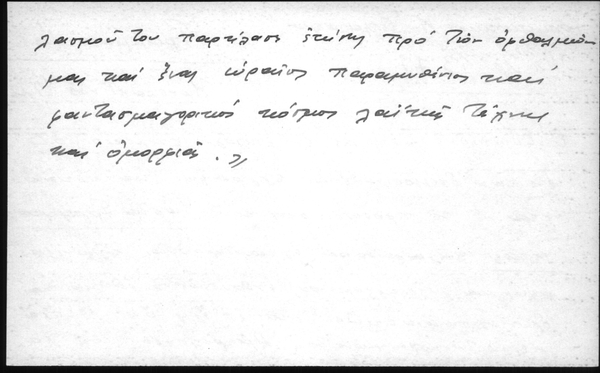 λασμοῦ του παρήλασε ἐπίσης πρό τῶν ὀφθαλμῶν
μας καί ἕνας ὡραῖος παραμυθένιος καί
φαντασμαγορικός κόσμος λαϊκῆς τέχνης
καί ὀμορφιᾶς. »